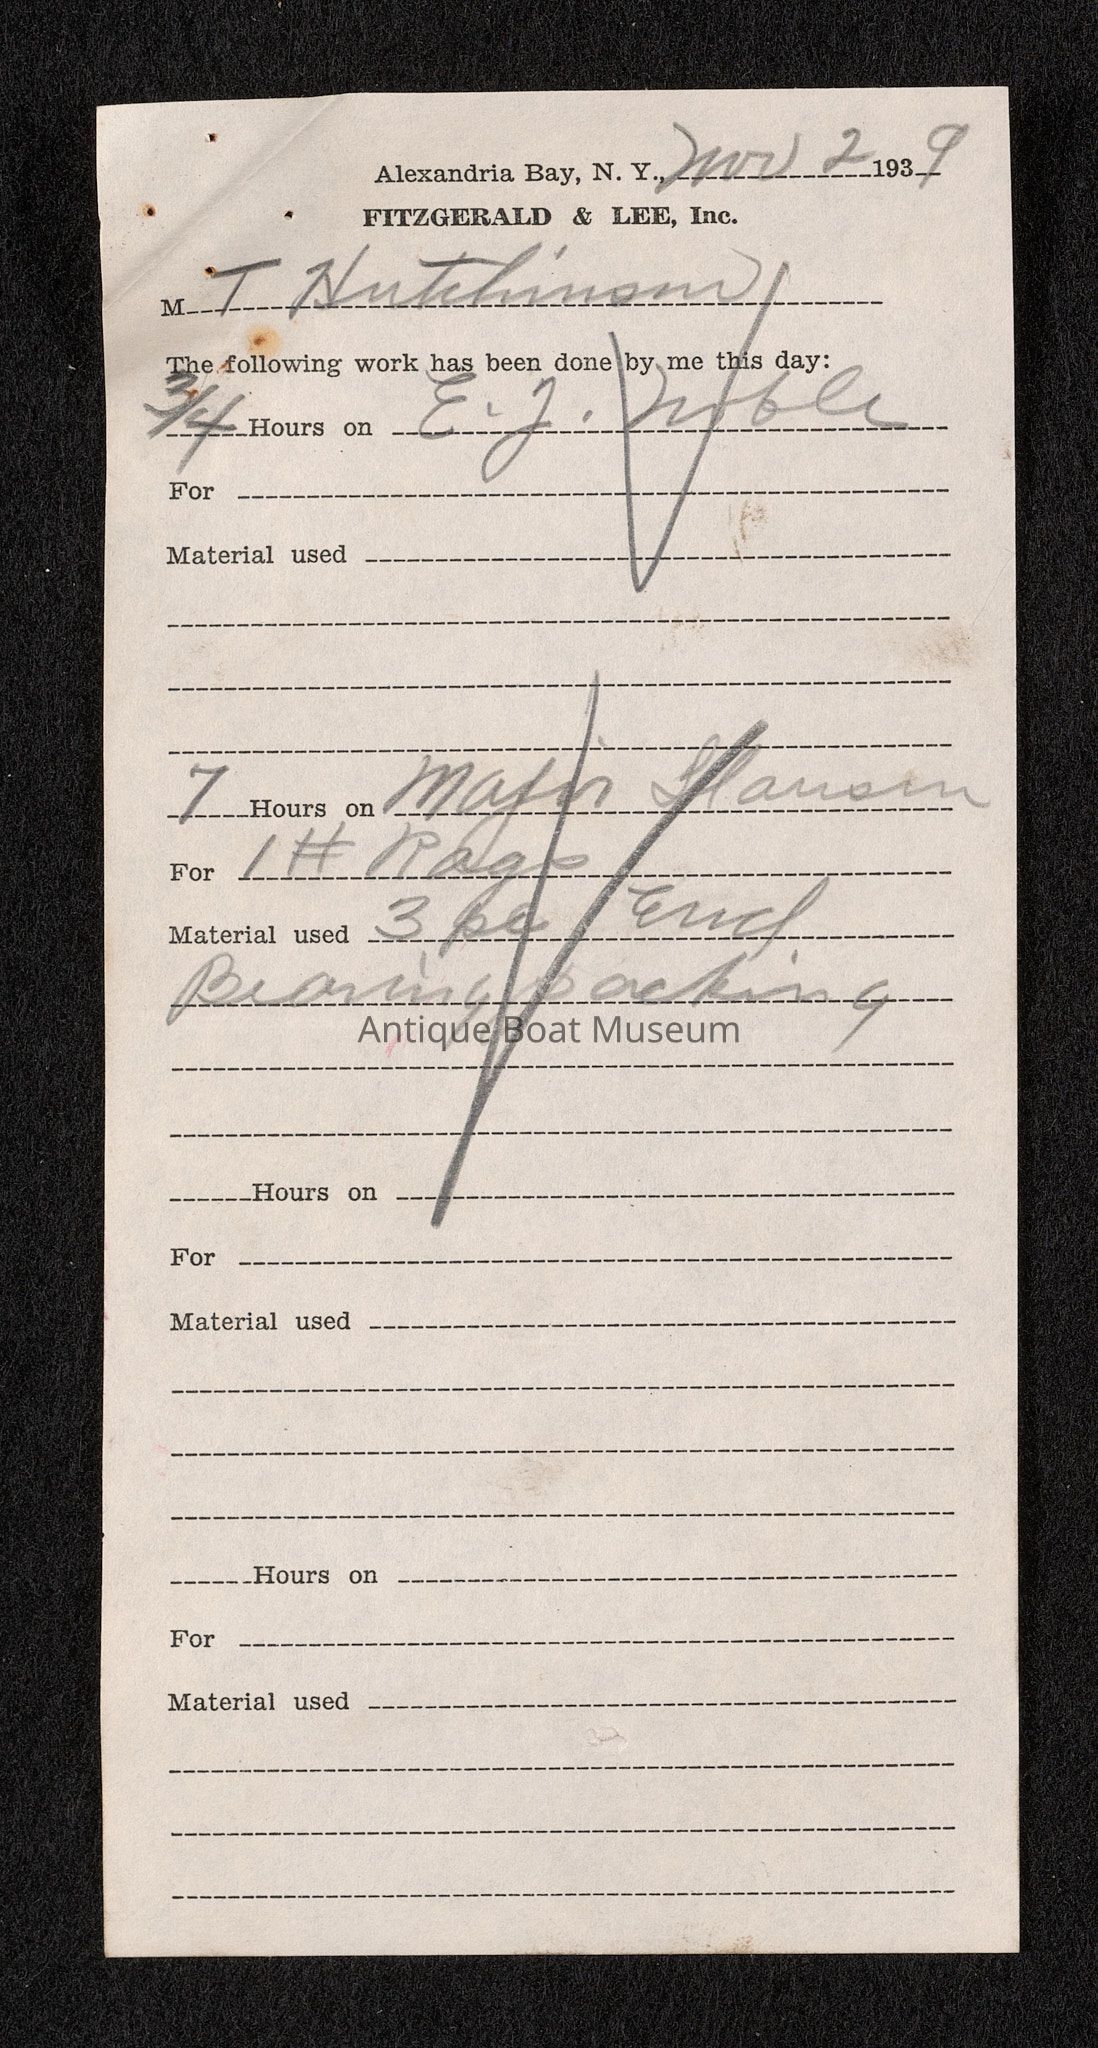 Alexandria Bay, N. Y., Nov 2 1939
FITZGERALD & LEE, Inc.
M T Hutchinson
The following work has been done by me this day:
3/4 Hours on E. J. Noble
For
Material used
7 Hours on Major
For 1 # Rags
Material used 3 pc End
Bearing packing
Antique Boat Museum
Hours on
For
Material used
Hours on
For
Material used